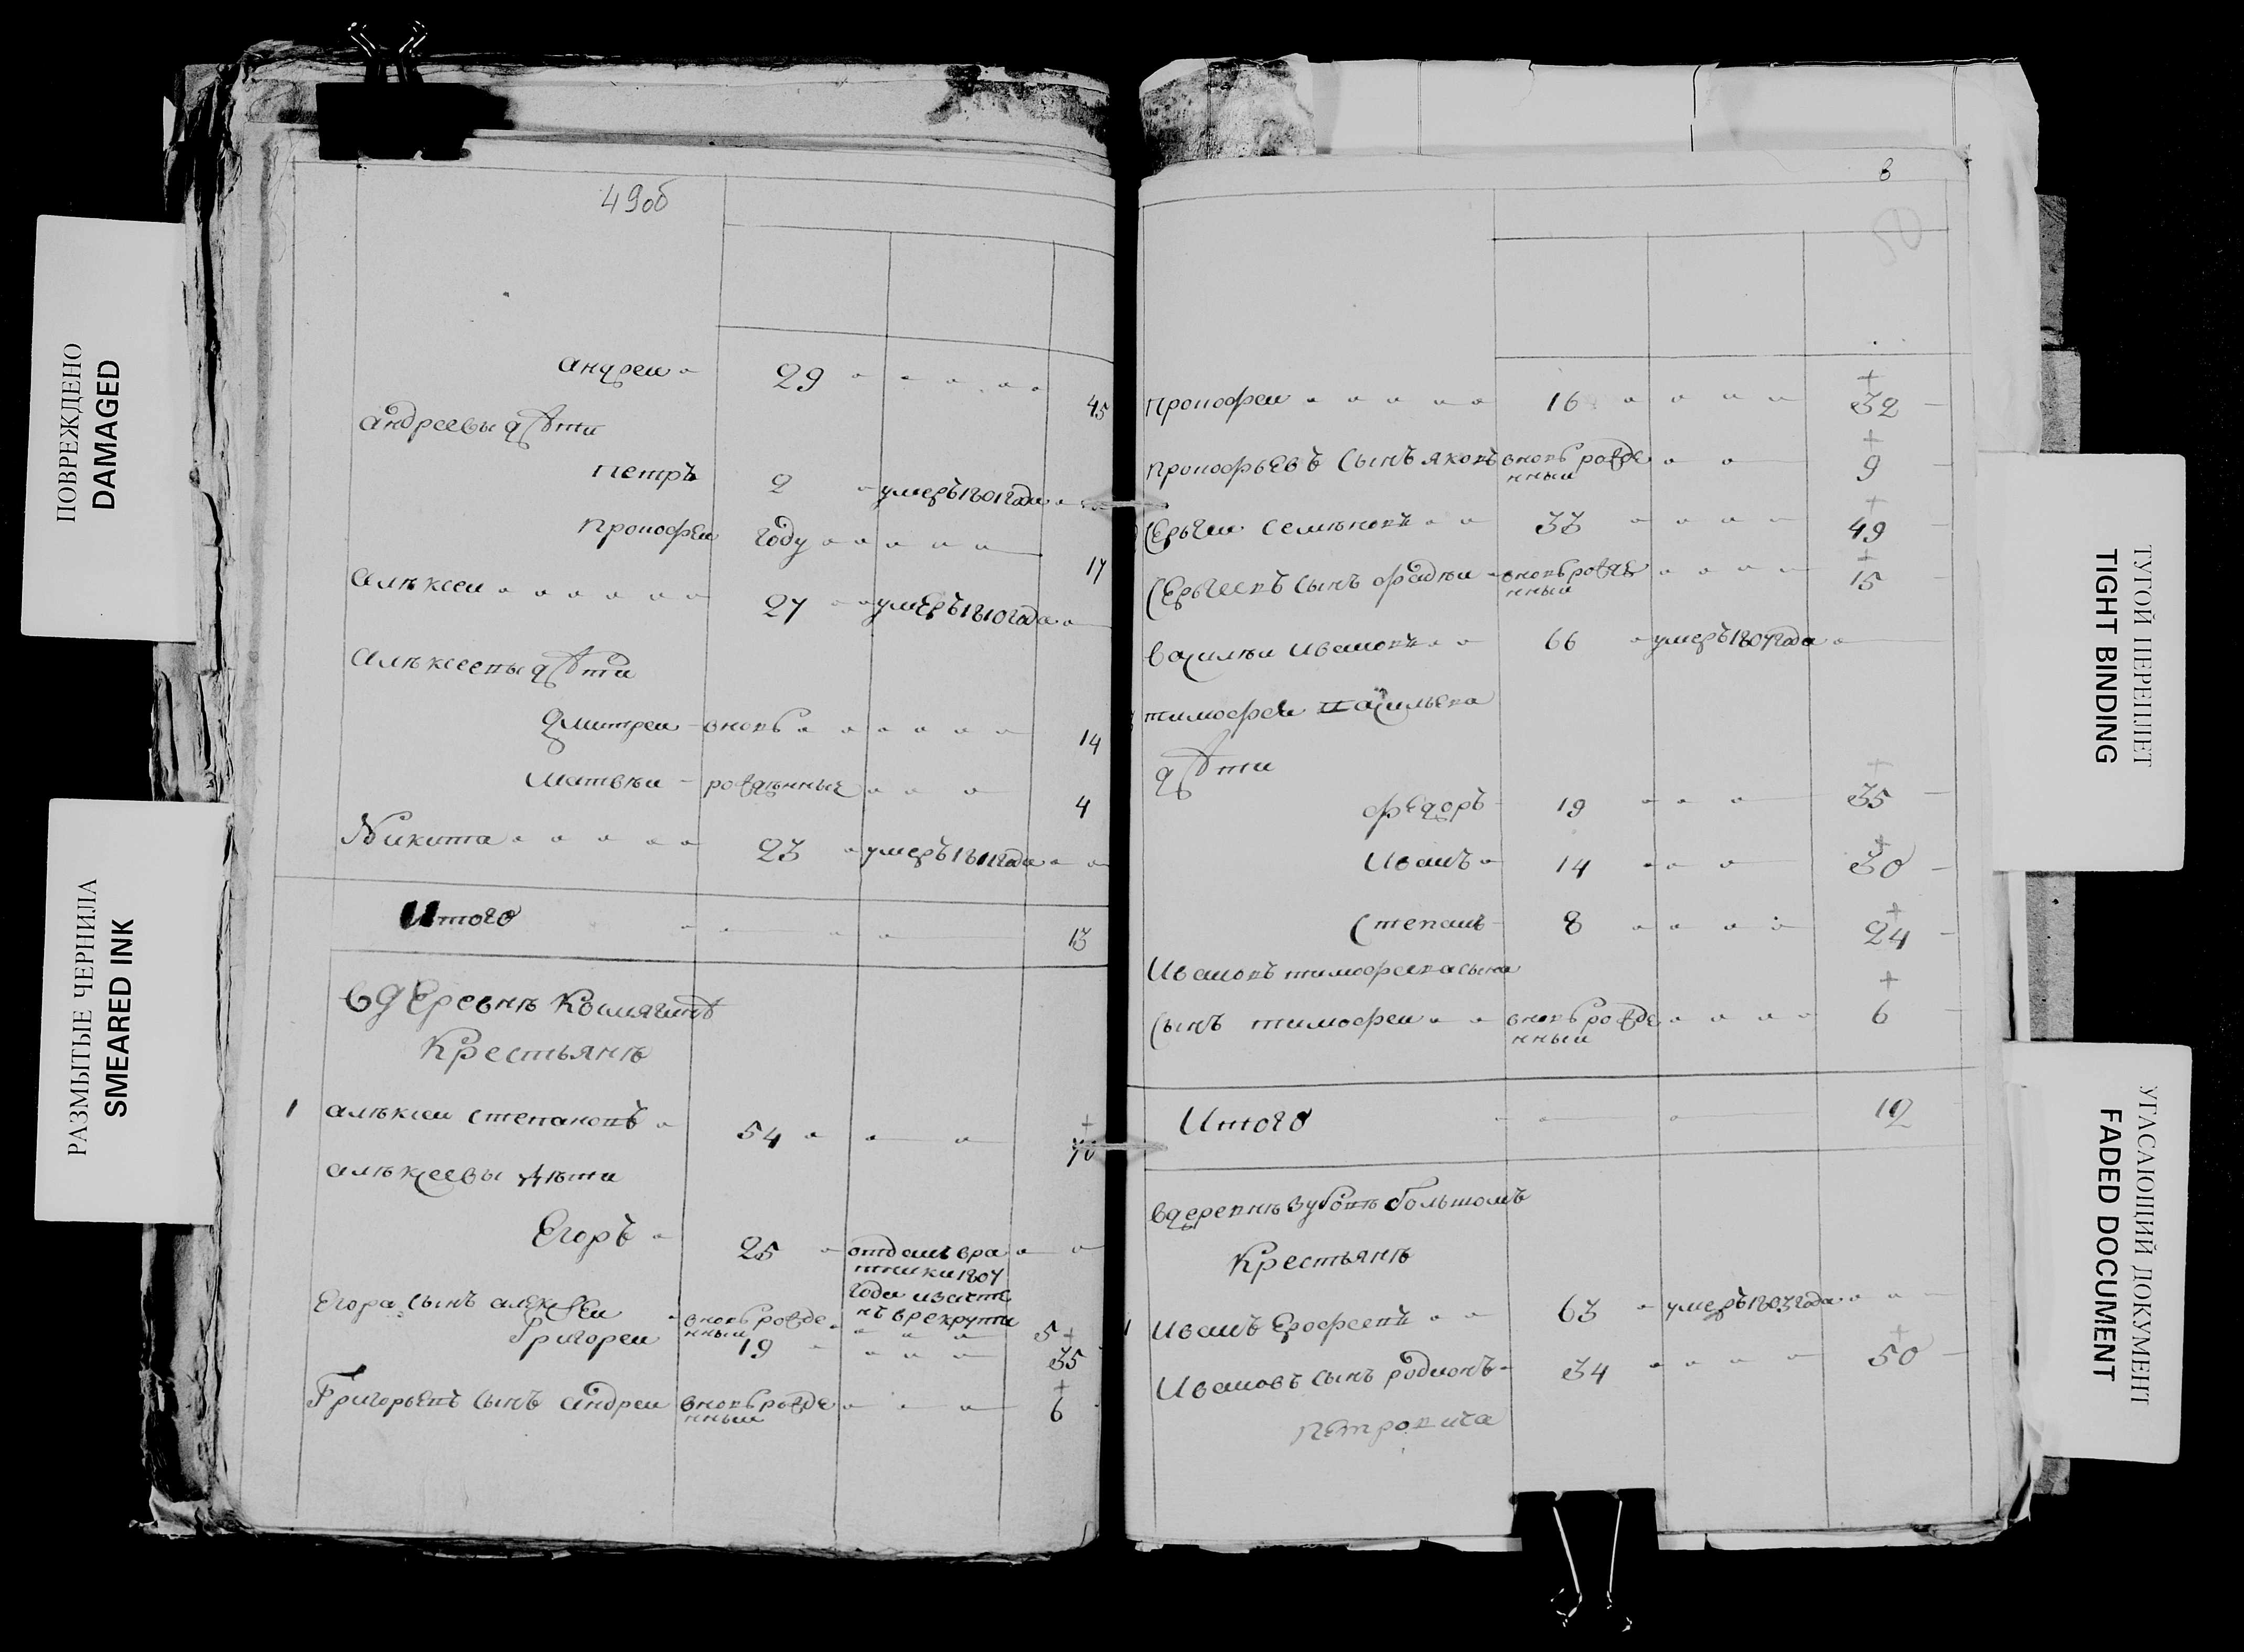 ПОВРЕЖДЕНО
DAMAGED
РАЗМЫТЫЕ ЧЕРНИЛА
SMEARED INK
49об
андреи 29 45
андреевы дѣти
петръ 2 умеръ 1801 года
прокофеи году 17
алѣксеи 27 умеръ 1810 года
алѣксеевы дѣти
дмитреи вновь 14
матвѣи рожденные 4
Никита 23 умеръ 1811 года
Итого 13
вдеревнѣ
Крестьянѣ
1 алѣксеи степановъ 54 70
алѣксеевы дѣти
Егоръ 25 отданъ вра
тники 1807
года изачтѣ
нъ врекруты
Егора сынъ алексеи вновь рожде 5
нный
Григореи 19 35
Григорьевъ сынъ андреи вновь рожде 6
нный
8
50
прокофеи 16 32
прокофьевъ сынъ яковъ вновь рожде 9
нный
Сергеи семѣновъ 33 49
Сергеевъ сынъ фадѣи вновь рожде 15
нный
василѣи ивановъ 66 умеръ 1807 года
тимофеи васильева
дѣти
федоръ 19 35
Иванъ 14 30
Степанъ 8 24
Ивановъ тимофеева сына
сынъ тимофеи вновь рожде 6
нный
Итого 12
вдеревнѣ зубовѣ большомъ
Крестьянѣ
1 Иванъ Ерофеевъ 63 умеръ 1803 года
Ивановъ сынъ родионъ 34 50
петровича
ТУГОЙ ПЕРЕПЛЕТ
TIGHT BINDING
УГАСАЮЩИЙ ДОКУМЕНТ
FADED DOCUMENT